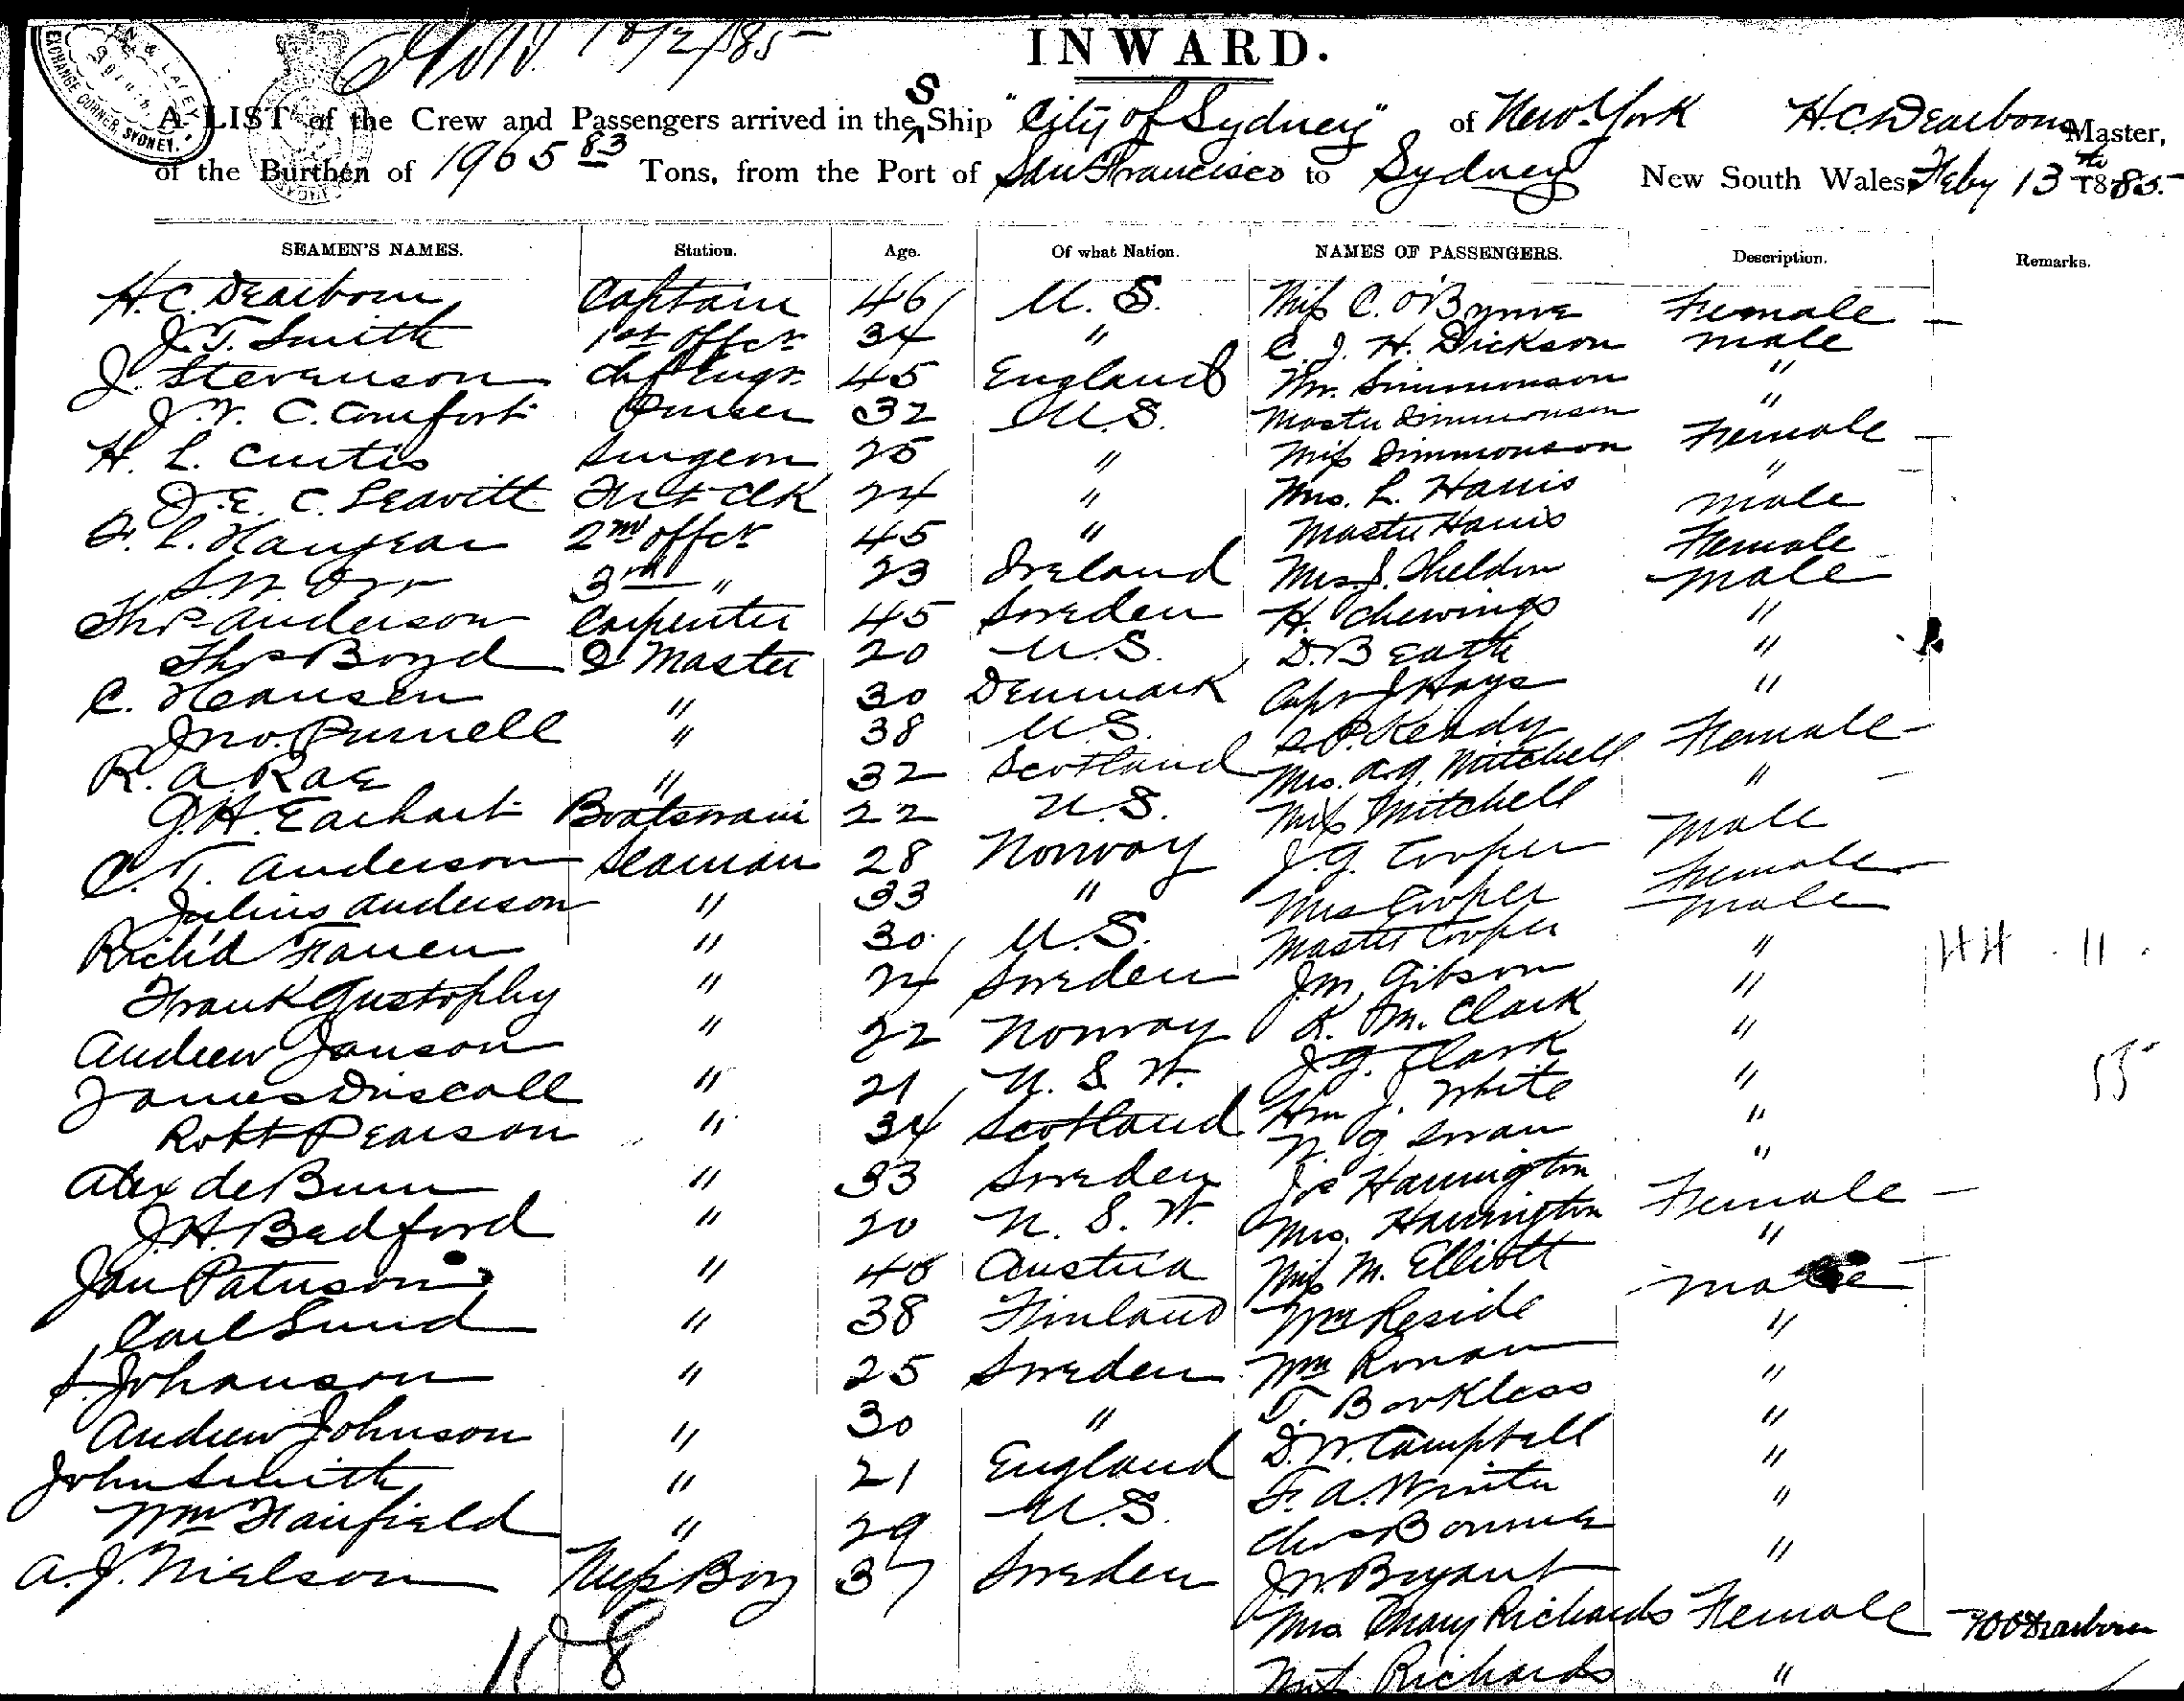 INWARD.
A LIST of the Crew and Passengers arrived in the S Ship "City of Sydney" of New York H.C. Dearborn Master,
of the Burthen of 1965 83 Tons, from the Port of San Francisco to Sydney New South Wales, Feby 13 th 1885.
SEAMEN'S NAMES. Station. Age. Of what Nation. NAMES OF PASSENGERS. Description. Remarks.
H.C. Dearborn Captain 46 U.S. Miss C. O'Byrne Female
J.T. Smith 1st Offcr 34 " C. J. H. Dickson male
J. Stevenson Chf Engr. 45 England Mr. Simmonson "
J. W. C. Comfort Purser 32 U.S. Master Simmonson "
H. L. Curtis Surgeon 25 " Miss Simmonson Female
J. E. C. Leavitt Frt Clk 24 " Mrs. L. Harris "
45 2nd offcr " Master Harris male
S. W. Orr 3rd " 23 Ireland Mrs. J. Sheldon Female
Thos Anderson Carpenter 45 Sweden H. Chewings male
Thos Boyd Q Master 20 U.S. D. Beath "
C. Hansen " 30 Denmark Capt J Hays "
Jno. Purnell " 38 U.S. "
R. A. Rae " 32 Scotland Mrs. A.G. Mitchell Female
G.H. Earhart Boatswain 22 U.S. Miss Mitchell "
C. T. Anderson Seaman 28 Norway J.G. Cooper Male
Julius Anderson " 33 " Mrs Cooper Female
Rich'd Farren " 30 U.S. Master Cooper male
Frank Gustophy " 24 Sweden J.M. Gibson "
Andrew Janson " 22 Norway K. M. Clark "
James Driscoll " 21 N.S.W. J.G. Clark "
Robt Pearson " 34 Scotland Wm J. White "
Alex de Burn " 33 Sweden N. G. Swan "
J.H. Bedford " 20 N.S.W. Jos Harrington "
Jan Paterson " 40 Austria Mrs. Harrington Female
Carl Sund " 38 Finland Miss M. Elliott "
S. Johanson " 25 Sweden Wm Reside male
Andrew Johnson " 30 " Wm Ronan "
John Smith " 21 England T. Borkless "
Wm Fairfield " 29 U.S. D.W. Campbell "
A.J. Nielson Mess Boy 37 Sweden F. A. Winter "
Chas Bonner "
J.W. Bryant "
Mrs Mary Richards Female
Miss Richards "
108